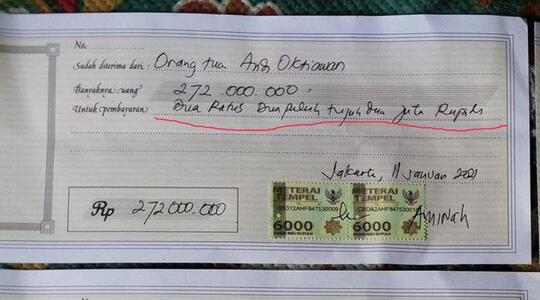 No.
Sudah diterima dari: Orang tua Andi Oktiawan
Banyaknya uang 272.000.000.
Untuk pembayaran Dua Ratus Dua puluh tujuh dua juta Rupiah
Jakarta, 11 Januari 2021
Rp 272000.000
METERAI TEMPEL METERAI TEMPEL
6000 6000
ENAM RIBU RUPIAH ENAM RIBU RUPIAH
AMINAH